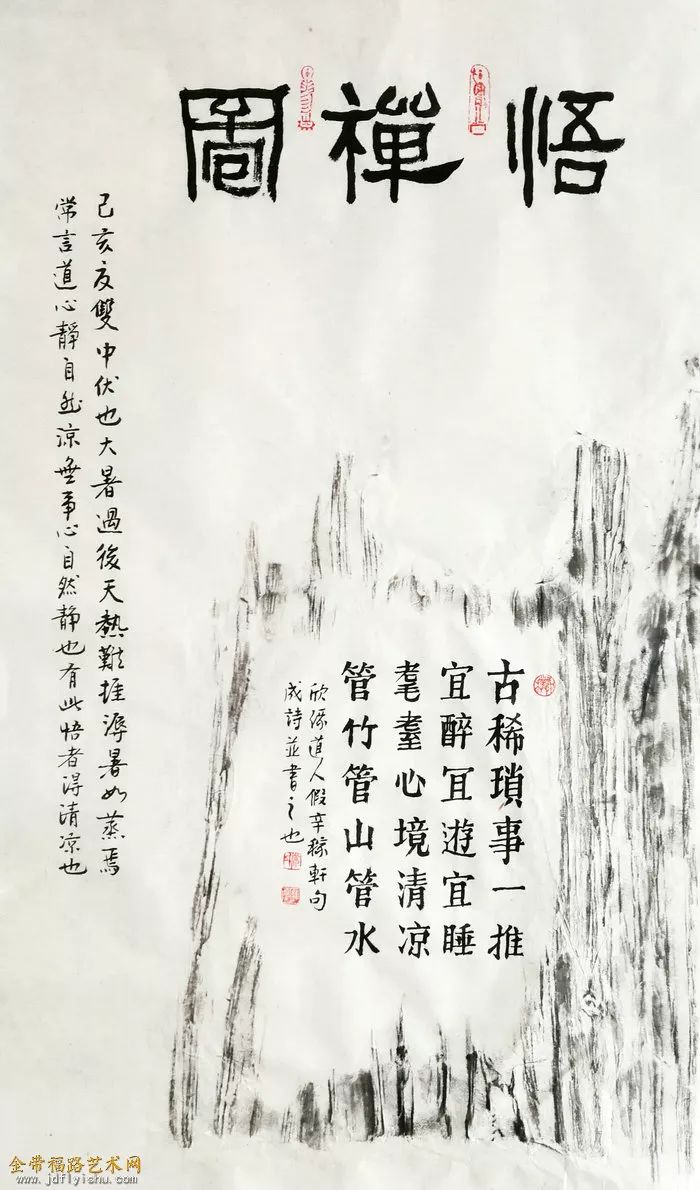 悟禪圖
古稀瑣事一推
宜醉宜遊宜睡
耄耋心境清凉
管竹管山管水
欣源道人假辛稼軒句
成詩並書之也
己亥夜雙中伏也大暑過後天熱難推溽暑如蒸焉
常言道心靜自然涼無事心自然靜也有此悟者得清凉也
金带福路艺术网
www.jdflyishu.com